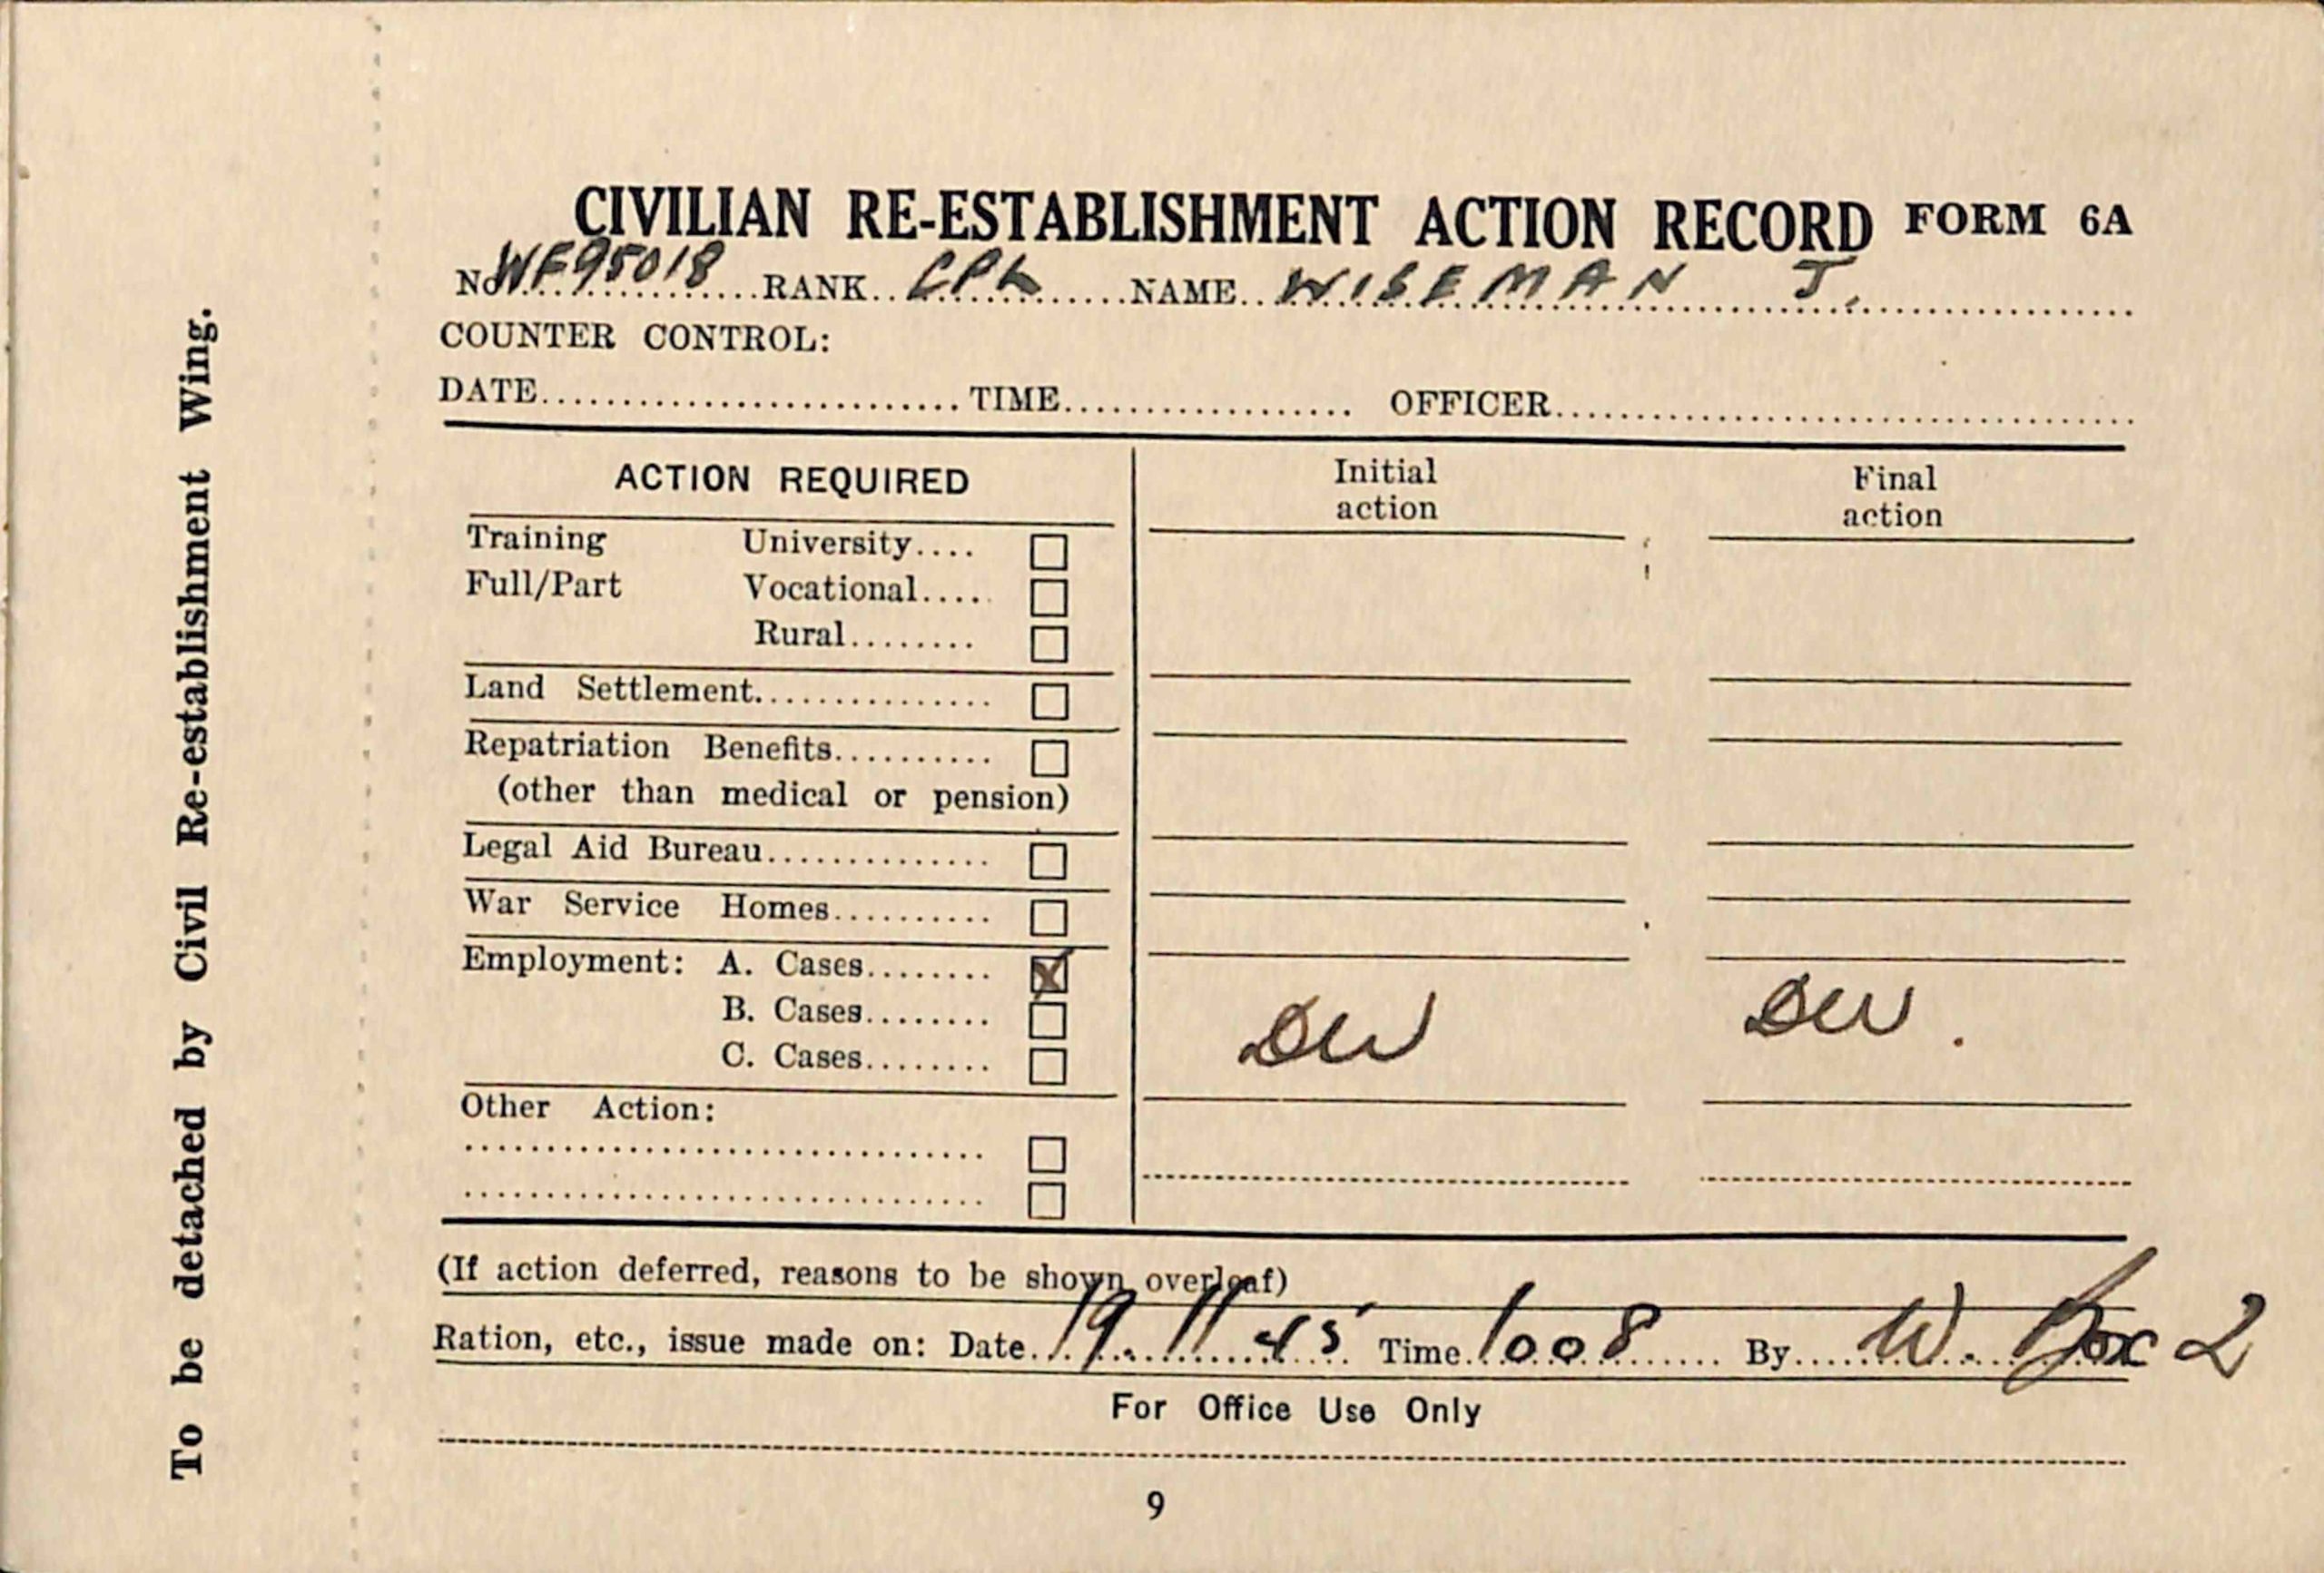 To be detached by Civil Re-establishment Wing.
CIVILIAN RE-ESTABLISHMENT ACTION RECORD FORM 6A
No WF95018 RANK CPL NAME WISEMAN J.
COUNTER CONTROL:
DATE TIME OFFICER
ACTION REQUIRED Initial action Final action
Training University
Full/Part Vocational
Rural
Land Settlement
Repatriation Benefits
(other than medical or pension)
Legal Aid Bureau
War Service Homes
Employment: A. Cases X
B. Cases DW DW.
C. Cases
Other Action:
(If action deferred, reasons to be shown overleaf)
Ration, etc., issue made on: Date 19.11.45 Time 1008 By W.
For Office Use Only
9